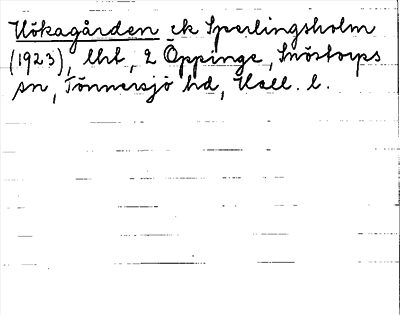 Hökagården ek Sperlingsholm
(1923), lht, 2 Öppinge, Snöstorps
sn, Tönnersjö hd, Hall. l.